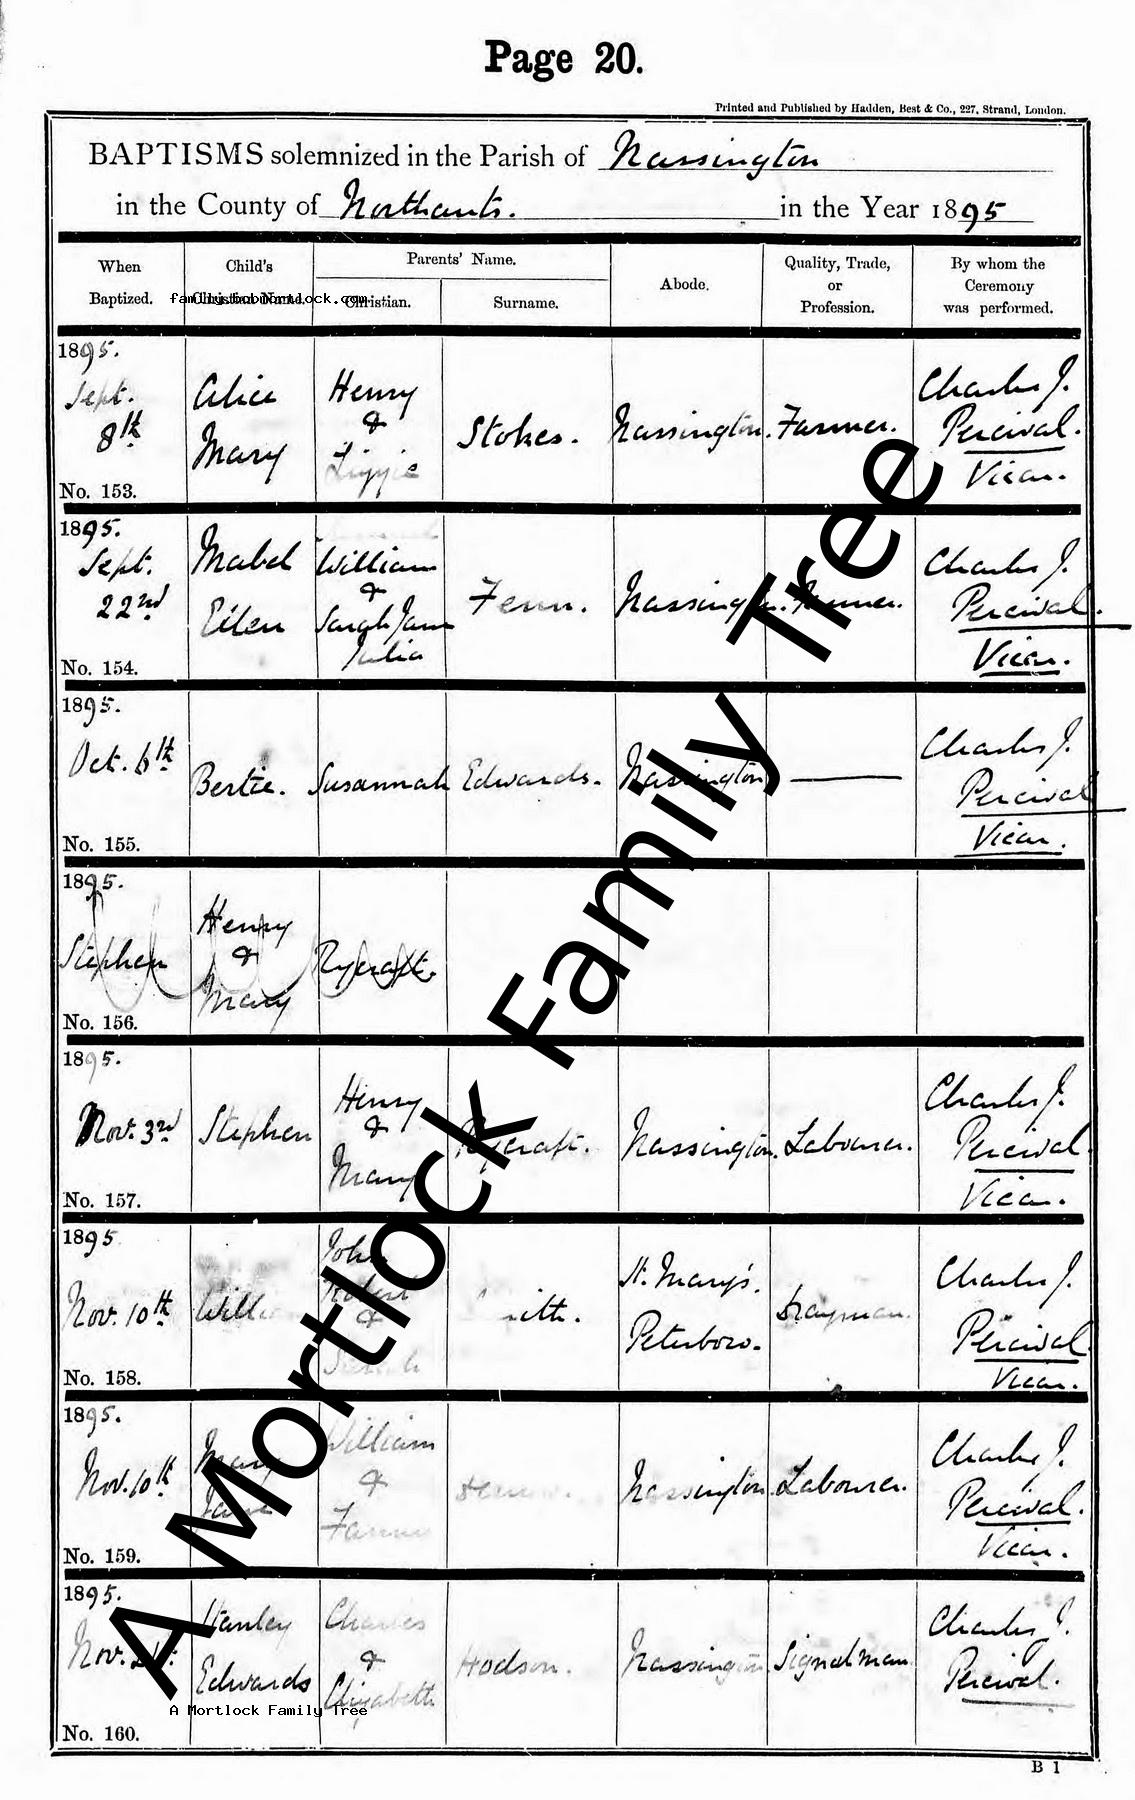 Page 20.
Printed and Published by Hadden, Best & Co., 227, Strand, London.
BAPTISMS solemnized in the Parish of Nassington
in the County of Northants. in the Year 1895
When Baptized.
Child's Christian Name.
Parents' Name.
Christian.
Surname.
Abode.
Quality, Trade, or Profession.
By whom the Ceremony was performed.
family.bobmortlock.com
1895.
Sept. 8th
No. 153.
Alice Mary
Henry & Lizzie
Stokes.
Nassington.
Farmer.
Charles J. Percival. Vicar.
1895.
Sept. 22nd
No. 154.
Mabel Eilen
William & Sarah Jane Julia
Fenn.
Nassington.
Charles J. Percival. Vicar.
1895.
Oct. 6th
No. 155.
Bertie.
Susannah
Edwards.
Nassington
—
Charles J. Percival Vicar.
1895.
Stephen
No. 156.
Henry & Mary
Rycraft.
1895.
Nov. 3rd
No. 157.
Stephen
Henry & Mary
Rycraft.
Nassington.
Labourer.
Charles J. Percival Vicar.
1895
Nov. 10th
No. 158.
John Robert & Sarah
St. Mary's. Peterboro.
Drayman.
Charles J. Percival Vicar.
1895.
Nov. 10th
No. 159.
Mary Jane
William &
Nassington.
Labourer.
Charles J. Percival. Vicar.
1895.
Nov.
No. 160.
Stanley Edwards
Charles & Elizabeth
Hodson.
Nassington.
Signalman.
Charles J. Percival.
A Mortlock Family Tree
A Mortlock Family Tree
B 1